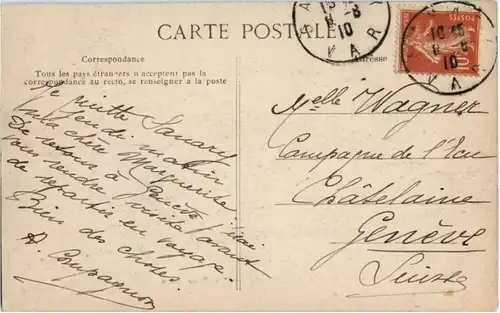 CARTE POSTALE
Correspondance
Tous les pays étrangers n'acceptent pas la
correspondance au recto, se renseigner à la poste
Adresse
Je quitte Sanary
jeudi matin
ma chère Marguerite.
De retour à j'irai
vous rendre visite avant
de repartir en voyage.
Bien des choses.
A. Compagnon
Melle Wagner
Campagne de l'Ecu
Châtelaine
Genève
Suisse
POSTES
10
VAR
8 - 8
10
VAR